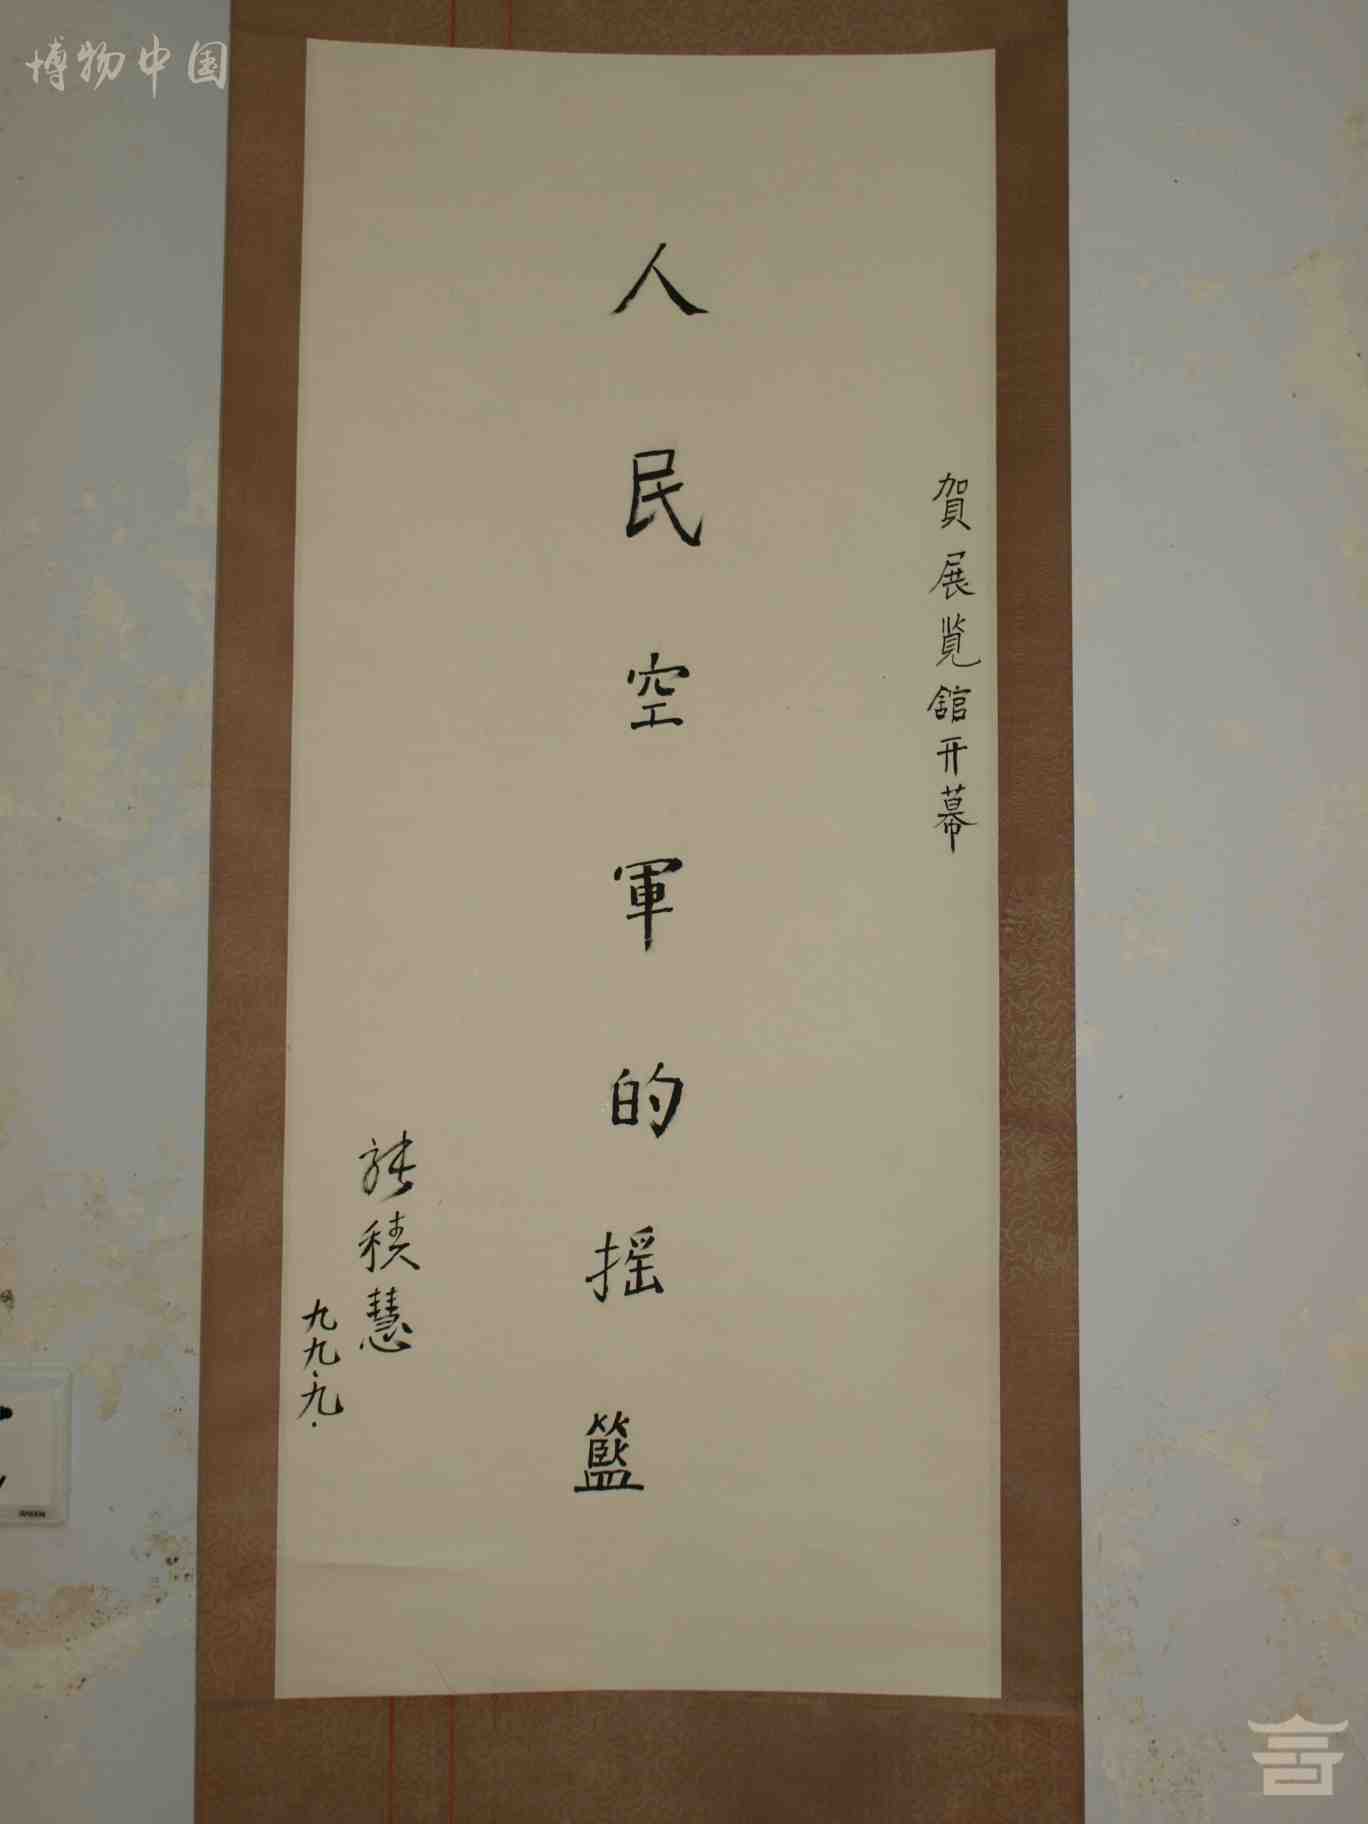 博物中国
賀展览舘开幕
人民空軍的摇籃
张積慧
九九.九.